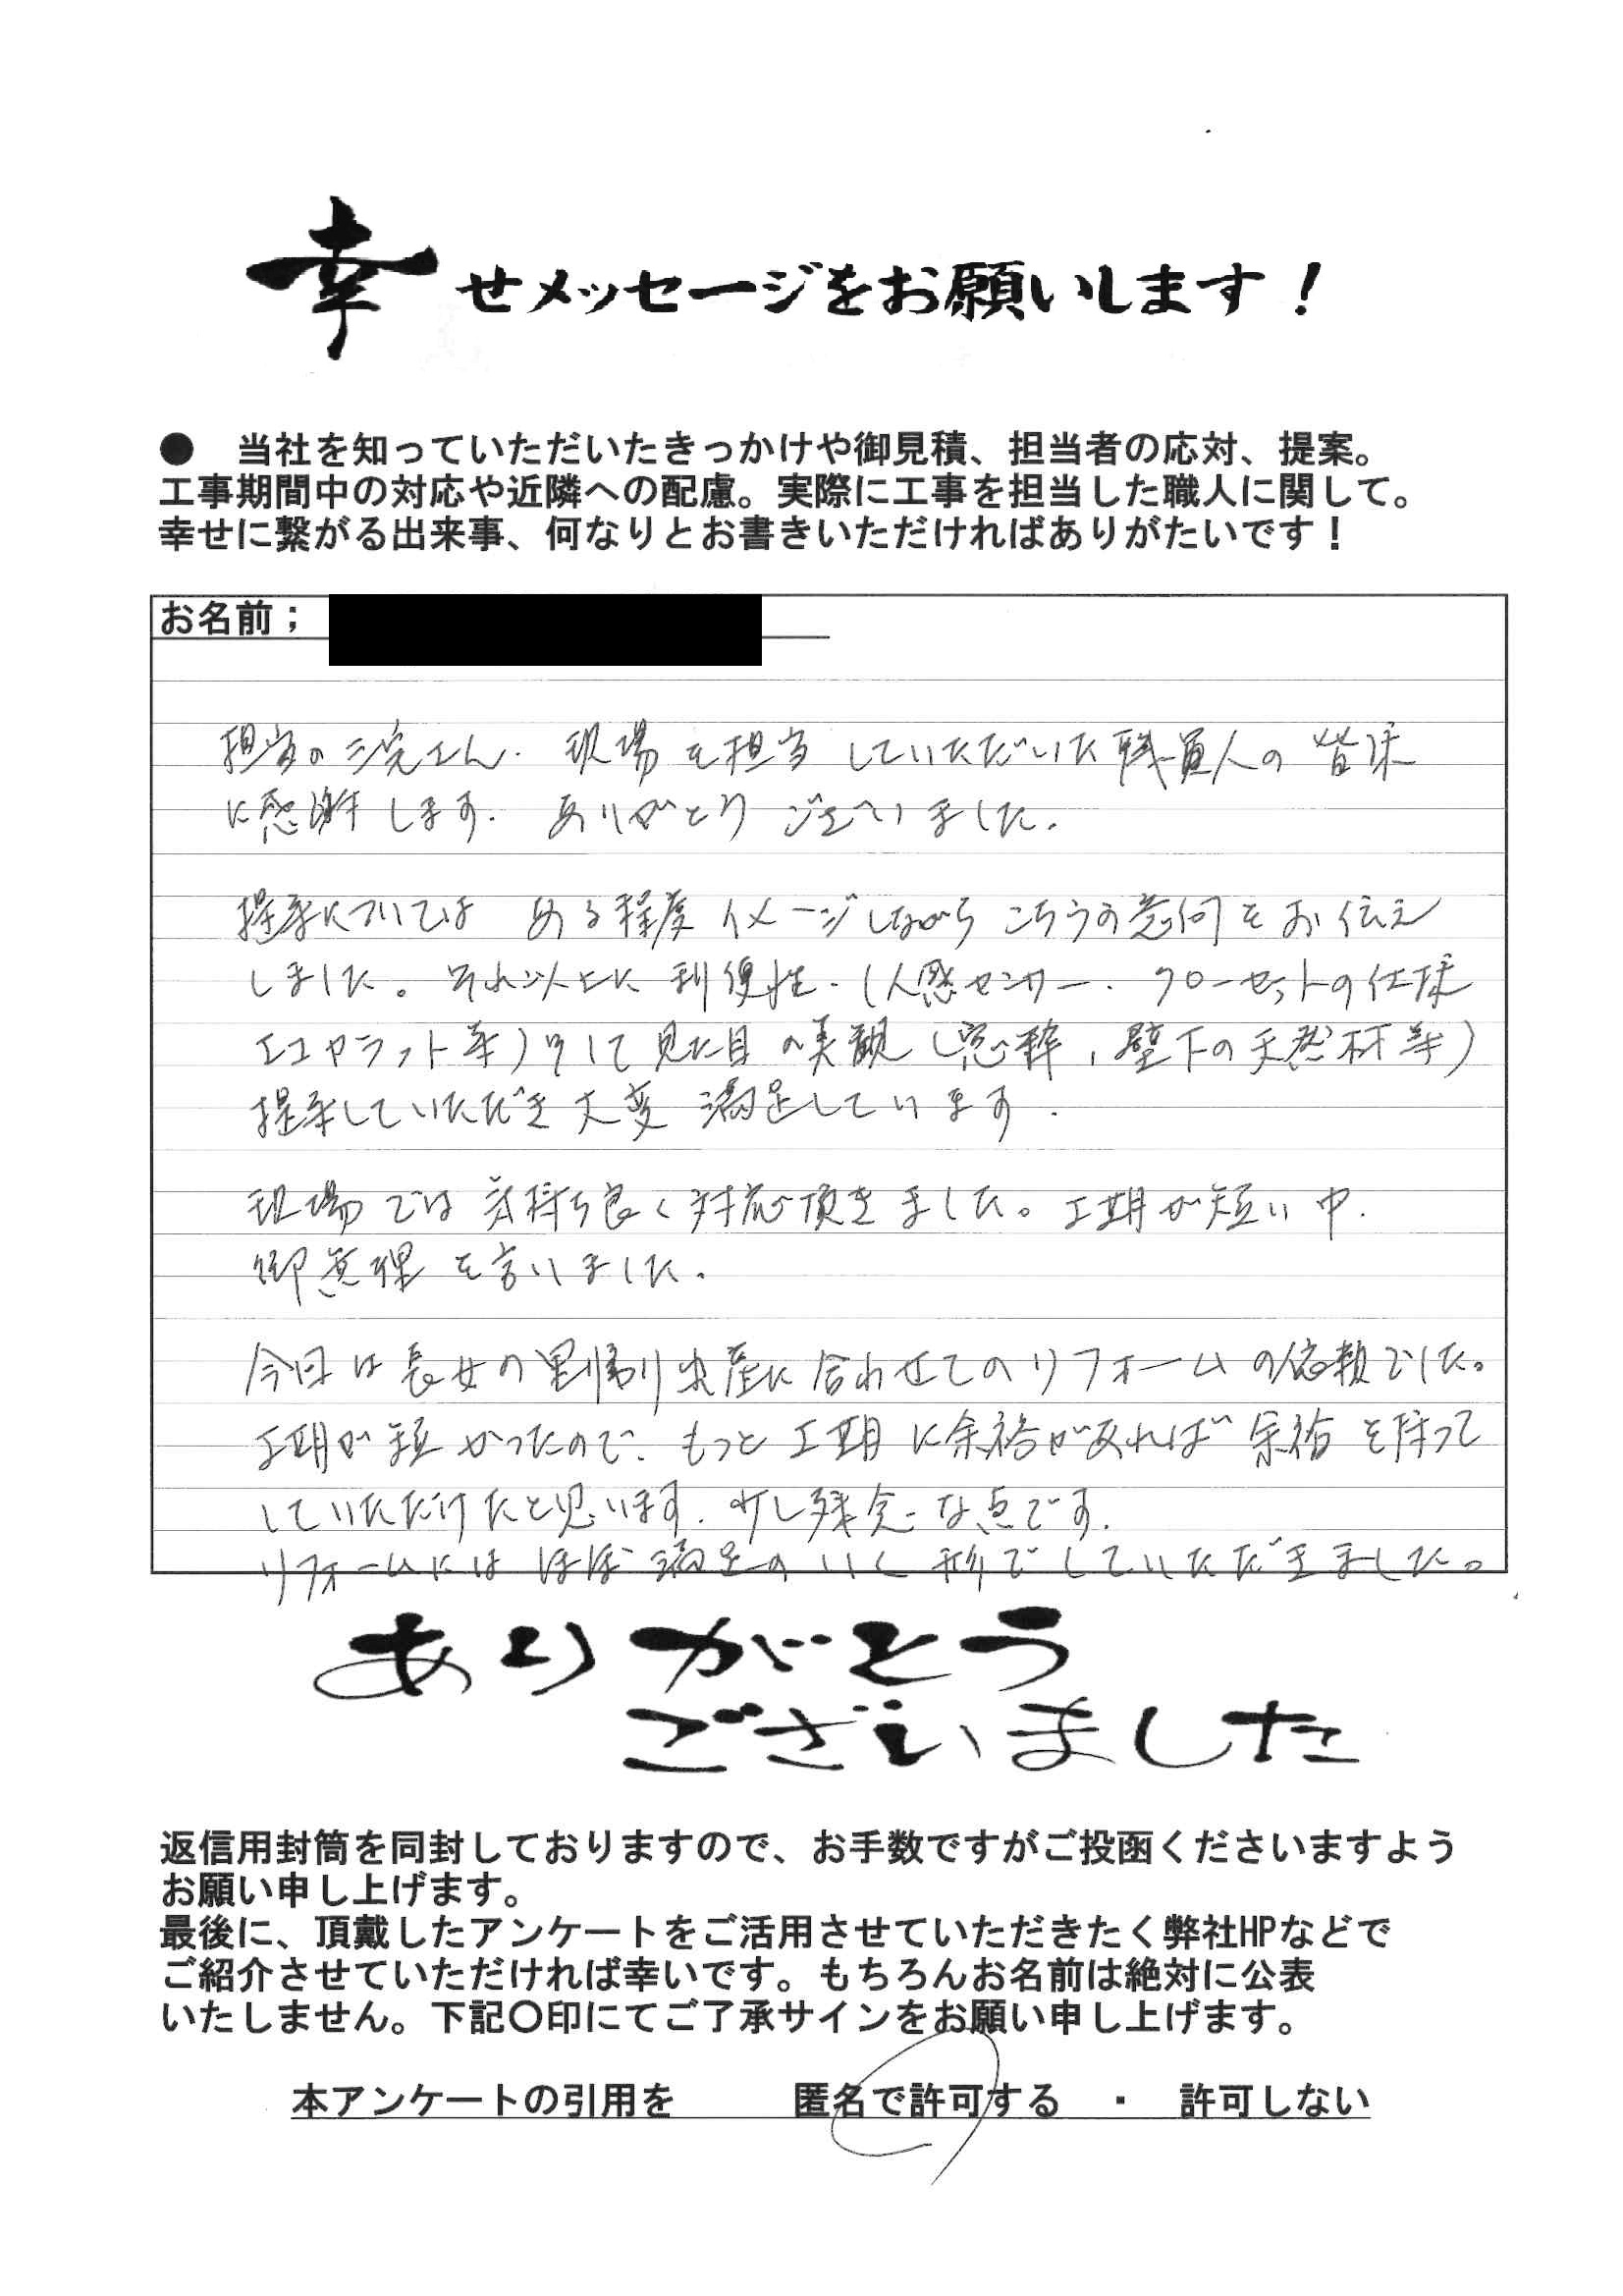 幸せメッセージをお願いします！
● 当社を知っていただいたきっかけや御見積、担当者の応対、提案。
工事期間中の対応や近隣への配慮。実際に工事を担当した職人に関して。
幸せに繋がる出来事、何なりとお書きいただければありがたいです！
お名前；
担当の三完さん、現場を担当していただいた職人の皆様
に感謝します。ありがとうございました。
提案については ある程度イメージしながらこちらの意向をお伝え
しました。それ以上に利便性、（人感センサー、クローゼットの仕様
エコカラット等）そして見た目の美観（窓枠、壁下の天然材等）
提案していただき大変満足しています。
現場では気持ち良く対応頂きました。工期が短い中、
御無理を言いました。
今回は長女の里帰り出産に合わせてのリフォームの依頼でした。
工期が短かったので、もっと工期に余裕があれば余裕を持って
していただけたと思います。少し残念な点です。
リフォームにはほぼ満足のいく形でしていただきました。
ありがとう
ございました
返信用封筒を同封しておりますので、お手数ですがご投函くださいますよう
お願い申し上げます。
最後に、頂戴したアンケートをご活用させていただきたく弊社HPなどで
ご紹介させていただければ幸いです。もちろんお名前は絶対に公表
いたしません。下記〇印にてご了承サインをお願い申し上げます。
本アンケートの引用を 匿名で許可する ・ 許可しない